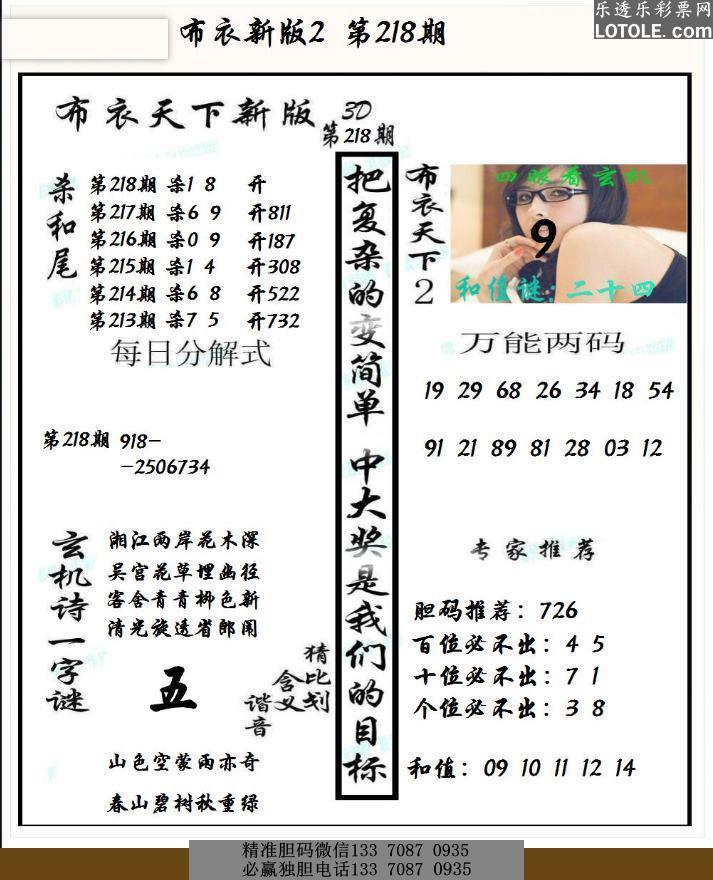 乐透乐彩票网
LOTOLE.com
布衣新版2 第218期
布衣天下新版 3D
第218期
杀和尾
第218期 杀1 8 开
第217期 杀6 9 开811
第216期 杀0 9 开187
第215期 杀1 4 开308
第214期 杀6 8 开522
第213期 杀7 5 开732
每日分解式
第218期 918-
-2506734
玄机诗一字谜
湘江两岸花木深
吴宫花草埋幽径
客舍青青柳色新
清光旋透省郎闱
五
猜比划
含义
谐音
山色空蒙雨亦奇
春山碧树秋重绿
把复杂的变简单 中大奖是我们的目标
布衣天下2
四眼看玄机
9
和值谜:二十四
万能两码
19 29 68 26 34 18 54
91 21 89 81 28 03 12
专家推荐
胆码推荐: 726
百位必不出: 4 5
十位必不出: 7 1
个位必不出: 3 8
和值: 09 10 11 12 14
精准胆码微信133 7087 0935
必赢独胆电话133 7087 0935